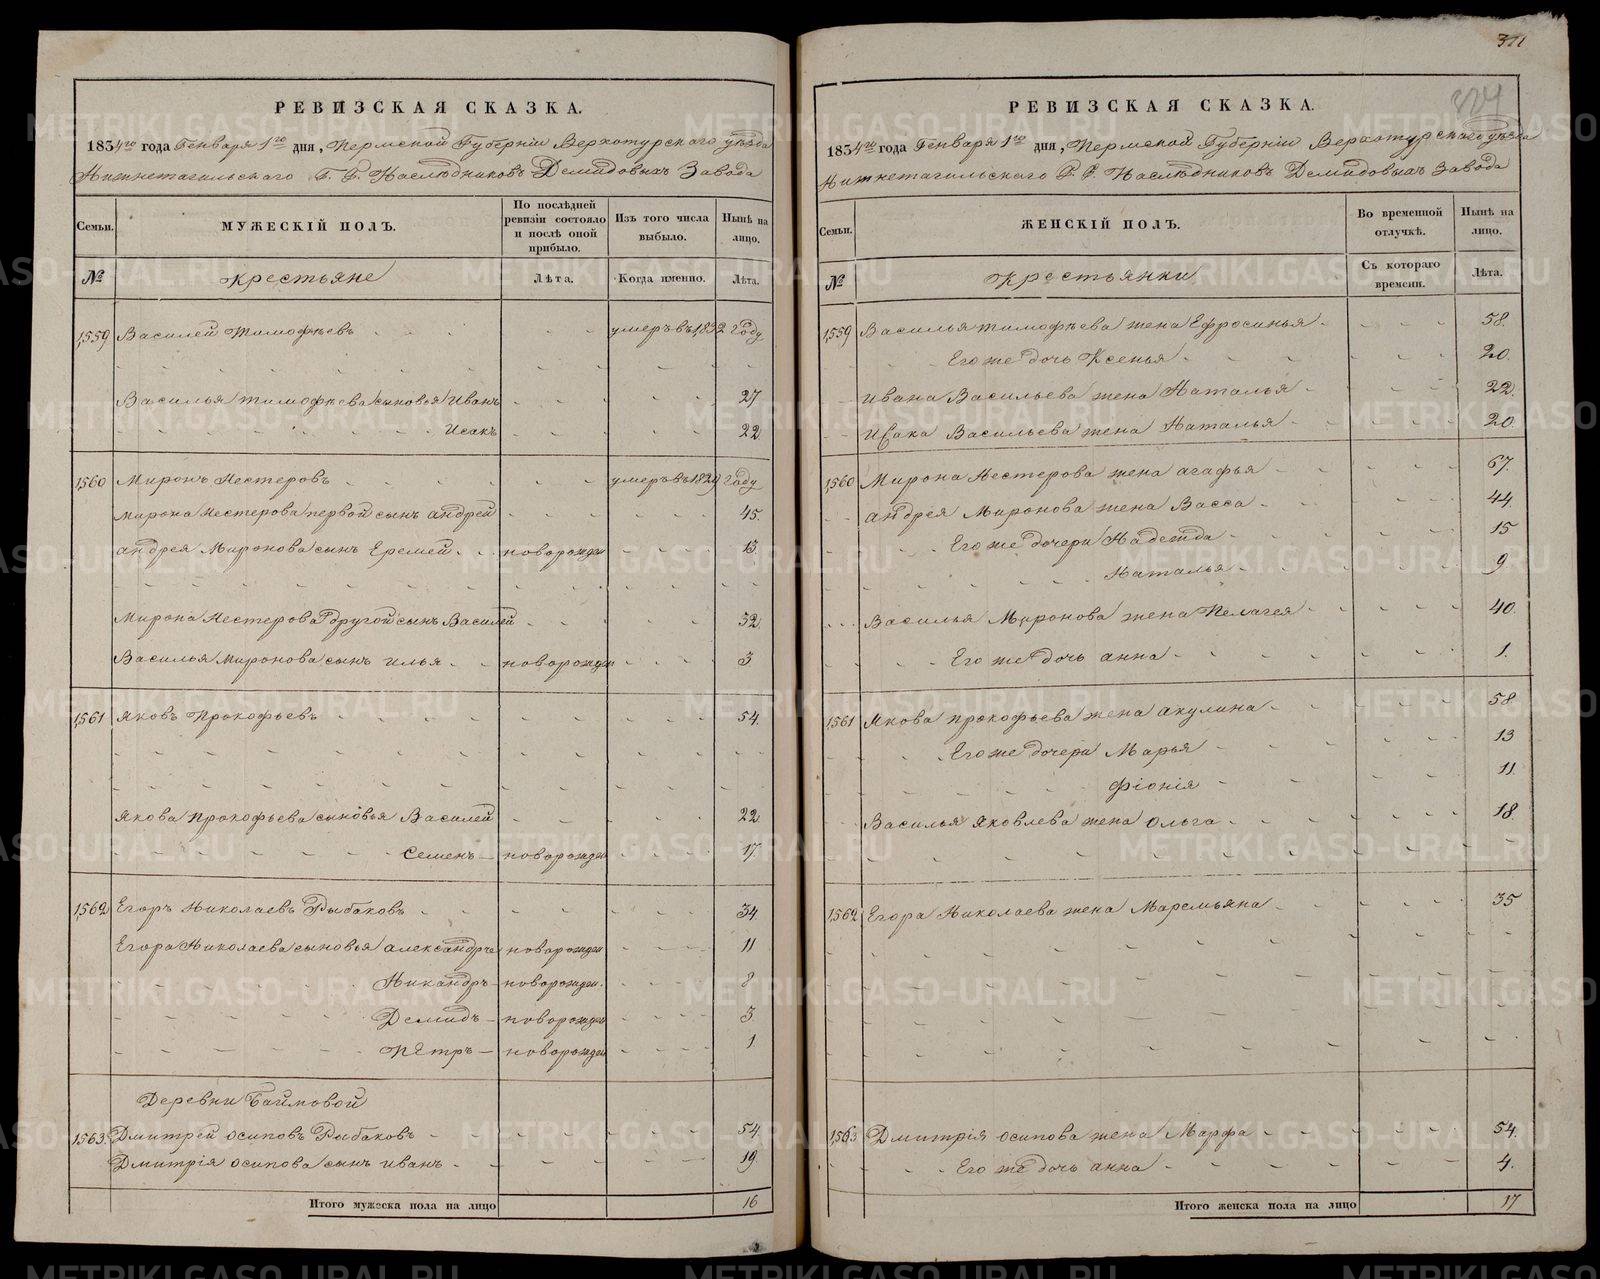 РЕВИЗСКАЯ СКАЗКА.
1834го года Генваря 1го дня, Пермской Губерніи Верхотурскаго уѣзда
Нижнетагильскаго Г. Г. Наслѣдниковъ Демидовыхъ Завода
Семьи. МУЖЕСКІЙ ПОЛЪ. По послѣдней ревизіи состояло и послѣ оной прибыло. Изъ того числа выбыло. Нынѣ на лицо.
№ Крестьяне Лѣта. Когда именно. Лѣта.
1559 Василей Тимофѣевъ умеръ въ 1832 году
Василья Тимофѣева сыновья Иванъ 27
Исакъ 22
1560 Миронъ Нестеровъ умеръ въ 1829 году
Мирона Нестерова первой сынъ Андрей 45.
Андрея Миронова сынъ Еремей новорожден 13
Мирона Нестерова другой сынъ Василей 32
Василья Миронова сынъ Илья новорожден 3
1561 Яковъ Прокофьевъ 54.
Якова Прокофьева сыновья Василей 22
Семенъ новорожден 17
1562 Егоръ Николаевъ Рыбаковъ 34
Егора Николаева сыновья Александръ новорожден 11
Никандръ новорожден. 8
Демидъ новорожден 3
Петръ новорожден 1
Деревни Баймовой
1563. Дмитрей Осиповъ Рыбаковъ 54.
Дмитрія Осипова сынъ Иванъ 19
Итого мужеска пола на лицо 16
311
РЕВИЗСКАЯ СКАЗКА.
1834го года Генваря 1го дня, Пермской Губерніи Верхотурскаго уѣзда
Нижнетагильскаго Г. Г. Наслѣдниковъ Демидовыхъ Завода
Семьи. ЖЕНСКІЙ ПОЛЪ. Во временной отлучкѣ. Нынѣ на лицо.
№ Крестьянки Съ котораго времени. Лѣта.
1559 Василья Тимофѣева жена Ефросинья 58.
Его же дочь Ксенья 20.
Ивана Васильева жена Наталья 22.
Исака Васильева жена Наталья 20.
1560 Мирона Нестерова жена Агафья 67.
Андрея Миронова жена Васса 44
Его же дочери Надежда 15
Наталья 9
Василья Миронова жена Пелагея 40.
Его же дочь Анна 1.
1561 Якова Прокофьева жена Акулина 58
Его же дочери Марья 13
Фіонія 11
Василья Яковлева жена Ольга 18.
1562 Егора Николаева жена Маремьяна 35
1563 Дмитрія Осипова жена Марфа 54.
Его же дочь Анна 4.
Итого женска пола на лицо 17
METRIKI.GASO-URAL.RU